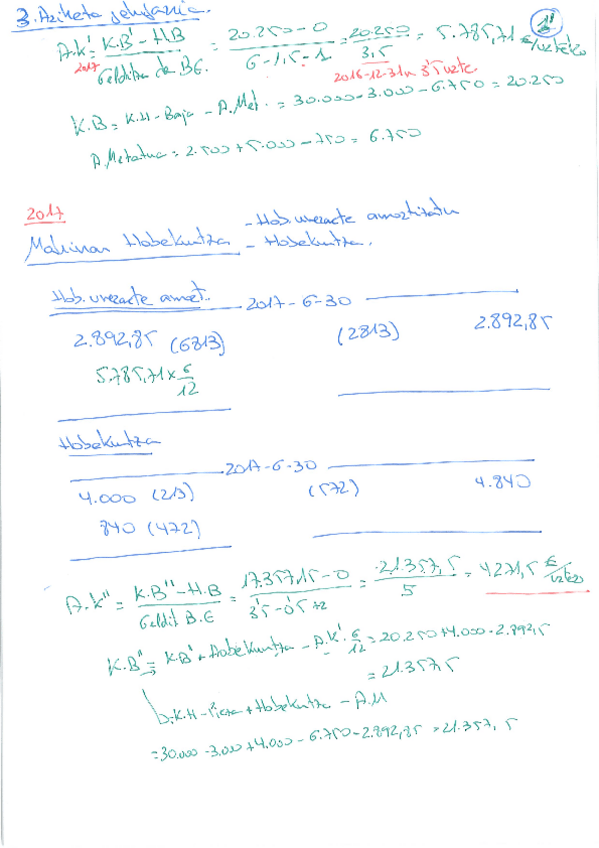 3. Ariketa jarraipena.
1'
A.k' = K.B' - H.B / Gelditzen da B.E. = 20.250 - 0 / 6 - 1,5 - 1 = 20.250 / 3,5 = 5.785,71 €/urteko
2017
2016-12-31n 3'5 urte
K.B = K.H - Baja - A.Met. = 30.000 - 3.000 - 6.750 = 20.250
A.Metatua = 2.500 + 5.000 - 750 = 6.750
2017
Makinan Hobekuntza
- Hob. urrezarte amortizatu
- Hobekuntza.
Hob. urrezarte amort.
2017-6-30
2.892,85 (6813) (2813) 2.892,85
5.785,71 x 6/12
Hobekuntza
2017-6-30
4.000 (213) (572) 4.840
840 (472)
A.k'' = K.B'' - H.B / Geldit B.E = 17.357,15 - 0 / 3'5 - 0'5 + 2 = 21.357,5 / 5 = 4.271,5 €/urteko
K.B'' = K.B' + Hobekuntza - A.k' . 6/12 = 20.250 + 4.000 - 2.892,5
= 21.357,5
K.H - Pieza + Hobekuntza - A.M
= 30.000 - 3.000 + 4.000 - 6.750 - 2.892,85 = 21.357,5